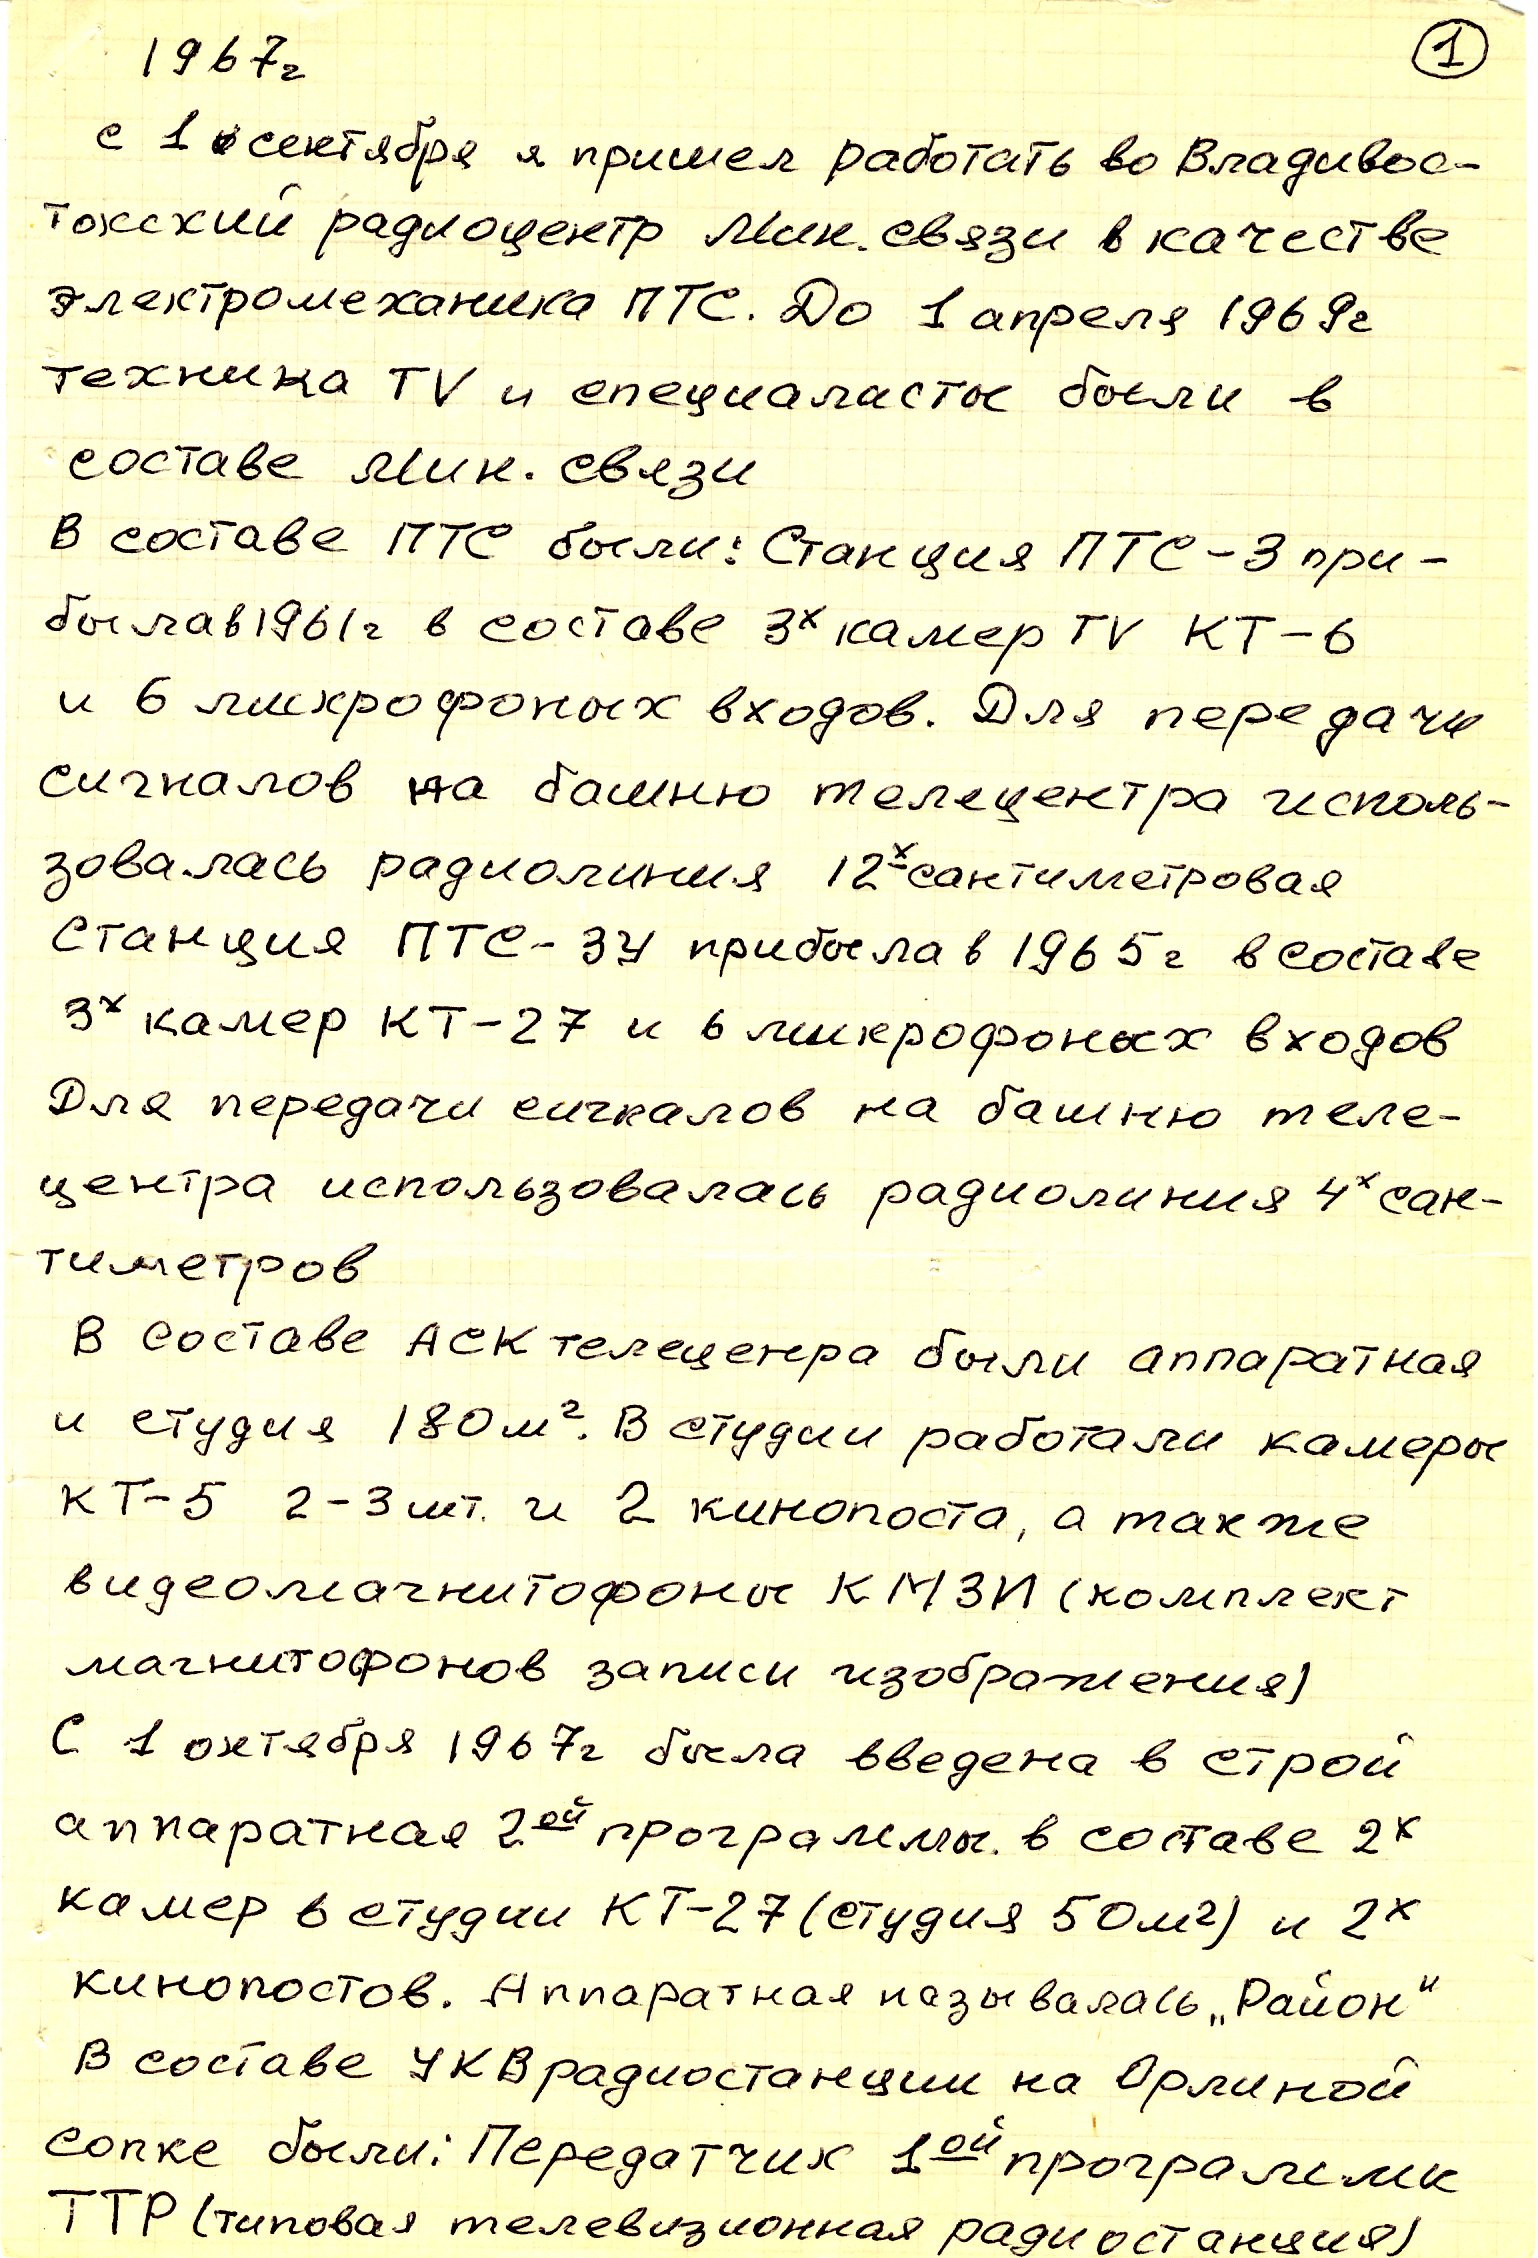 1967г
1
с 1 сентября я пришел работать во Владивос-
токский радиоцентр Мин. связи в качестве
электромеханика ПТС. До 1 апреля 1969г
техника TV и специаласты были в
составе Мин. связи
В составе ПТС были: Станция ПТС-3 при-
была в 1961г в составе 3х камер TV КТ-6
и 6 микрофоных входов. Для передачи
сигналов на башню телецентра исполь-
зовалась радиолиния 12х сантиметровая
Станция ПТС-3У прибыла в 1965г в составе
3х камер КТ-27 и 6 микрофоных входов
Для передачи сигналов на башню теле-
центра использовалась радиолиния 4х сан-
тиметров
В составе АСК телеценра были аппаратная
и студия 180м². В студии работали камеры
КТ-5 2-3 шт. и 2 кинопоста, а также
видеомагнитофоны КМЗИ (комплект
магнитофонов записи изображения)
С 1 октября 1967г была введена в строй
аппаратная 2ой программы. в составе 2х
камер в студии КТ-27 (студия 50м²) и 2х
кинопостов. Аппаратная называлась „Район"
В составе УКВ радиостанции на Орлиной
сопке были: Передатчик 1ой программы
ТТР (типовая телевизионная радиостанция)